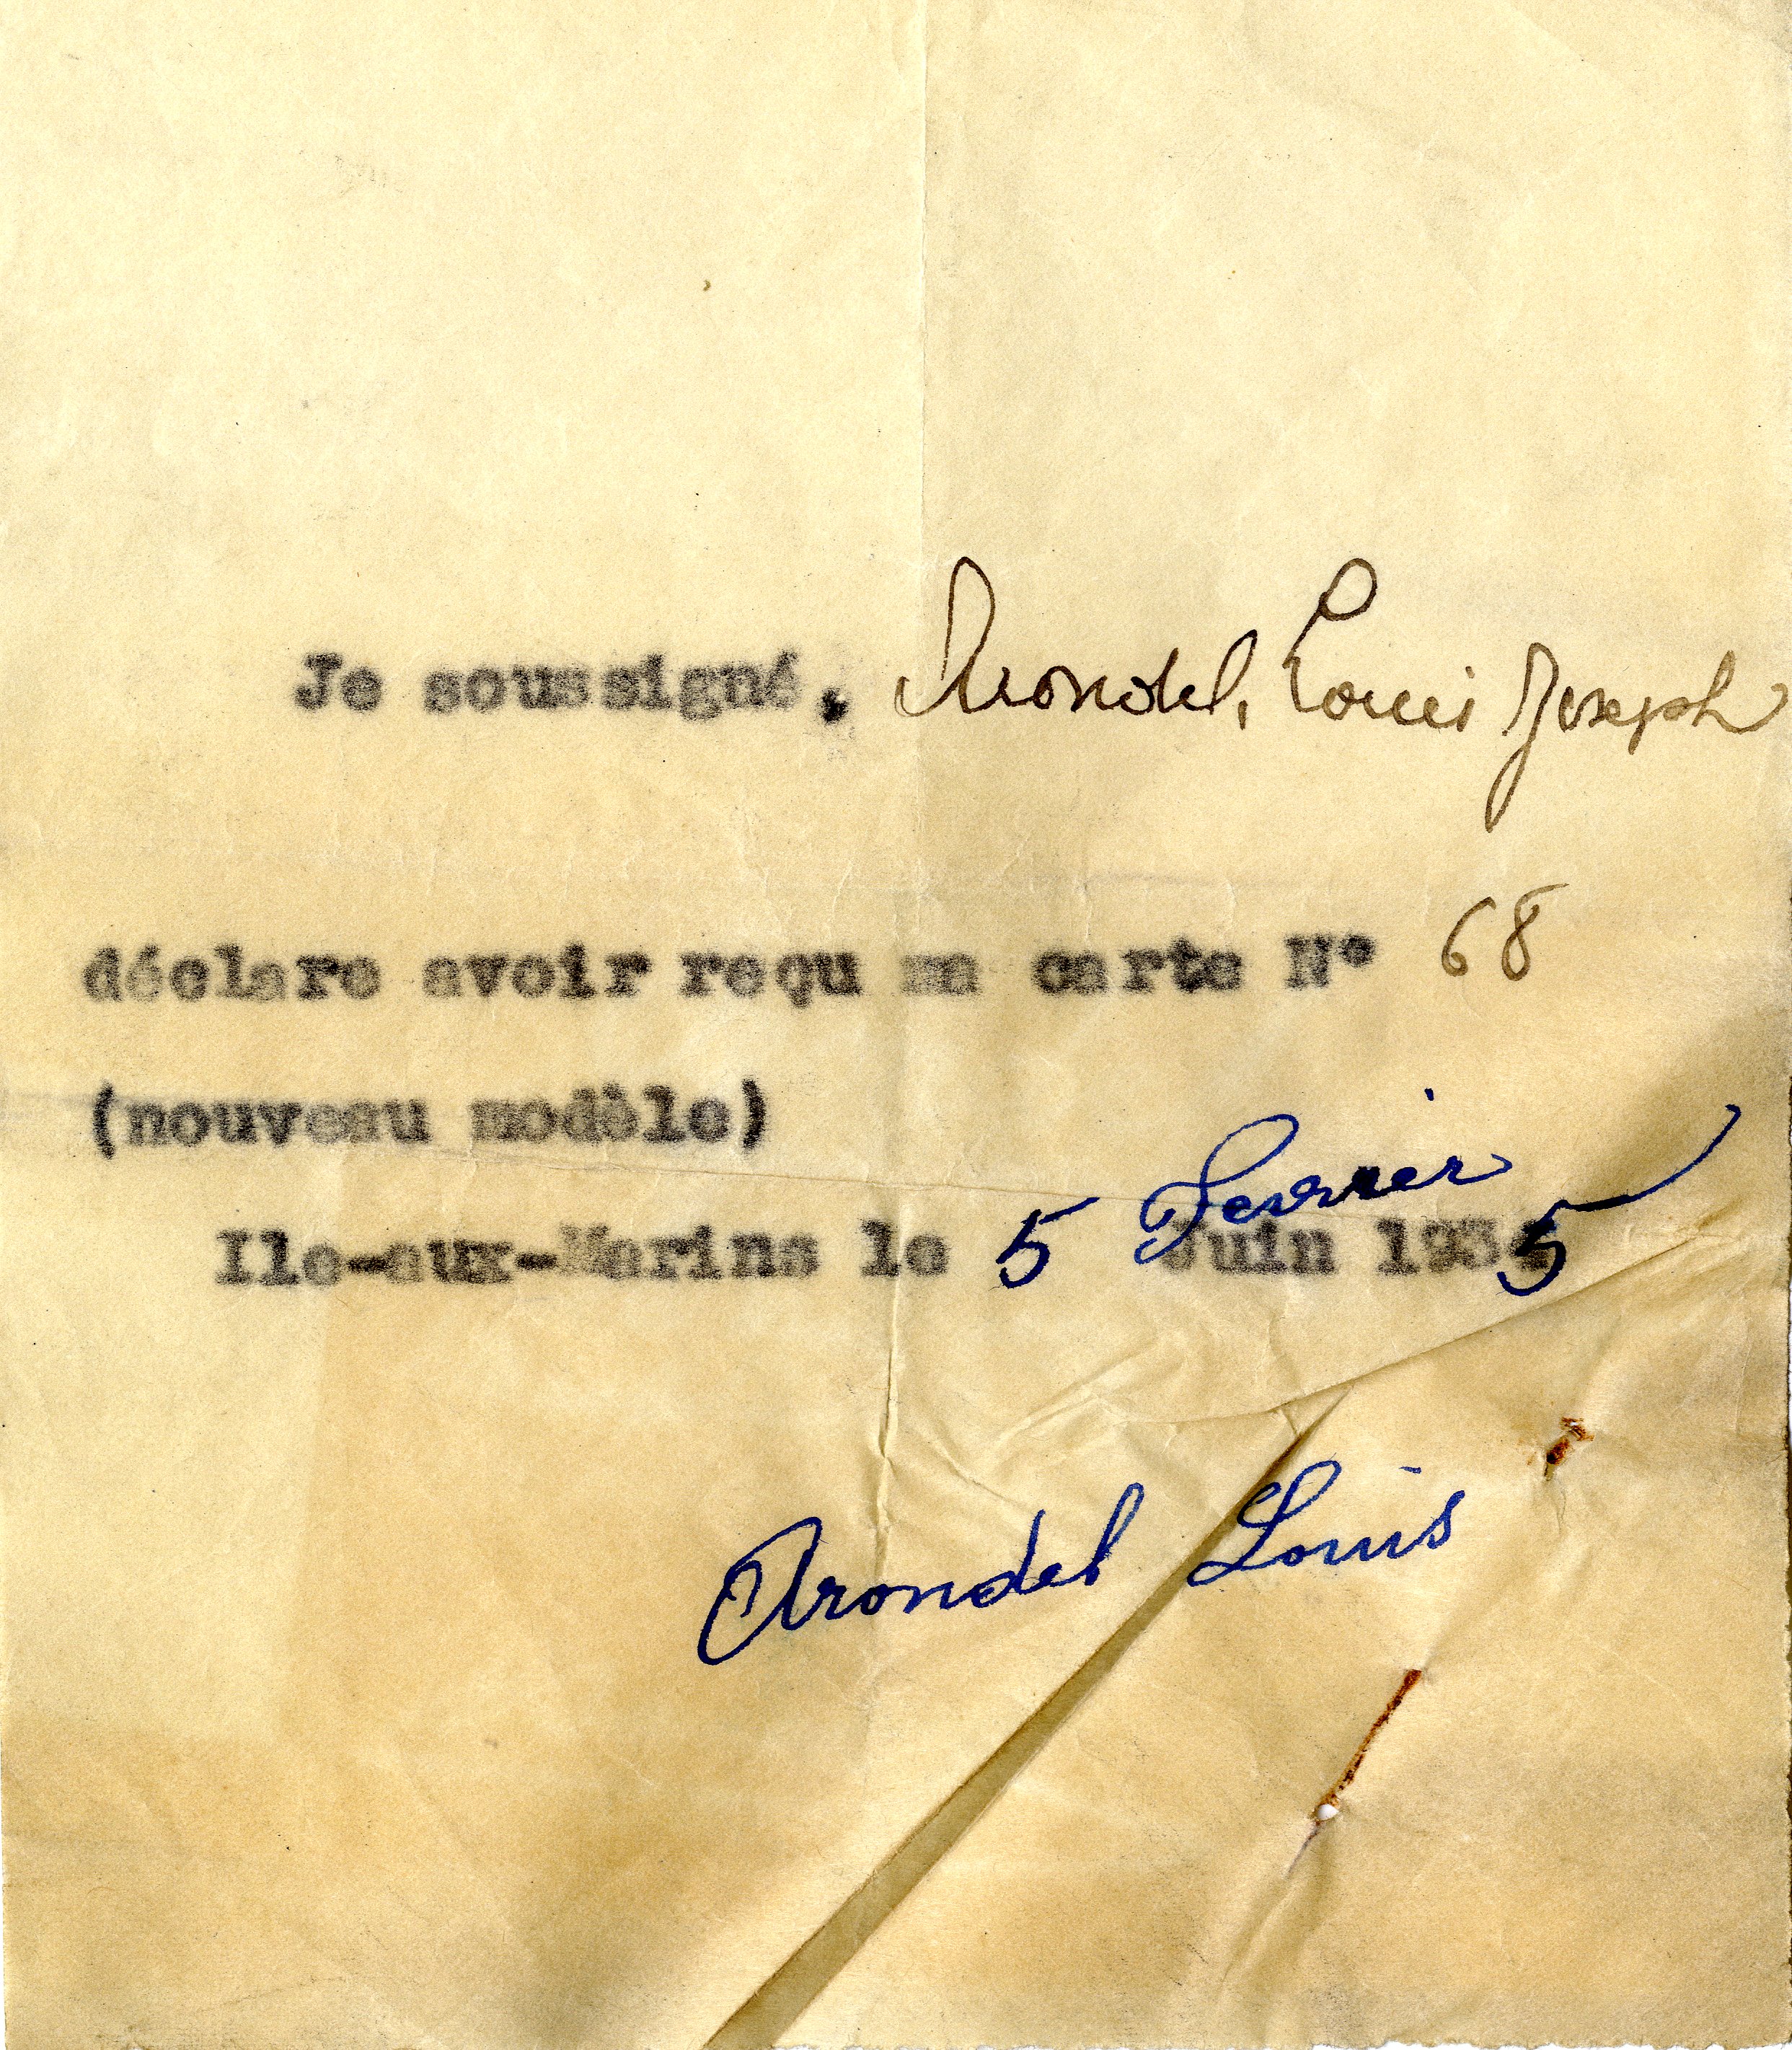 Je soussigné, Arondel, Louis Joseph
déclare avoir reçu ma carte N° 68
(nouveau modèle)
Fevrier
Ile-aux-Marins le 5 Juin 1935
Arondel Louis